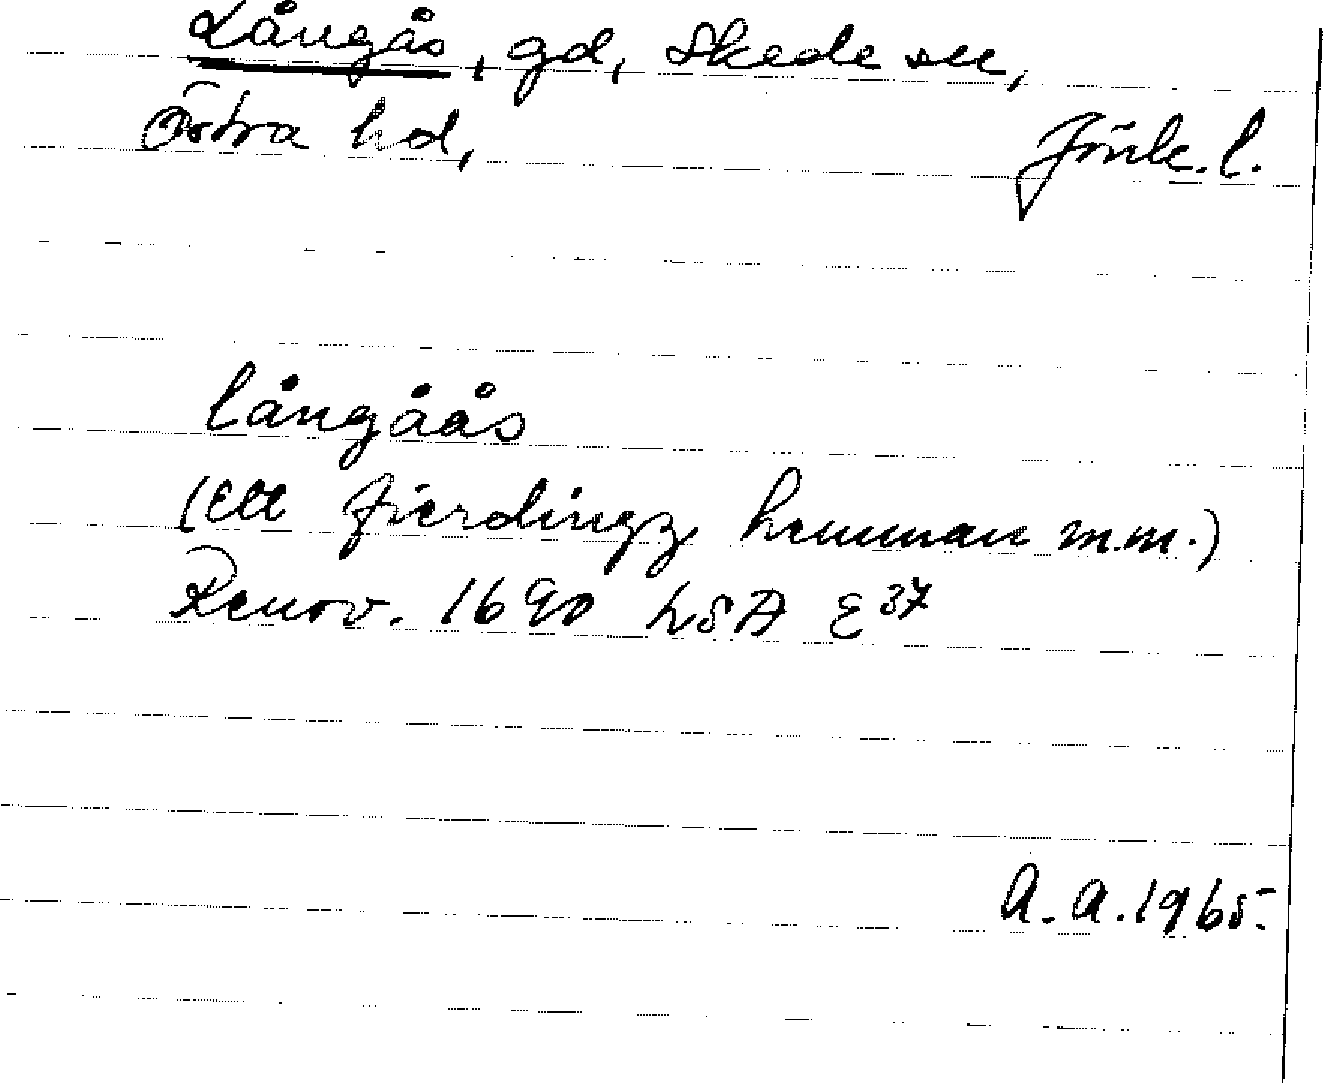 Långås, gd, Skede sn,
Östra hd, Jönk. l.
Långåås
(ett fierdingz hemman m.m.)
Renov. 1690 LSA E 37
A. A. 1965.